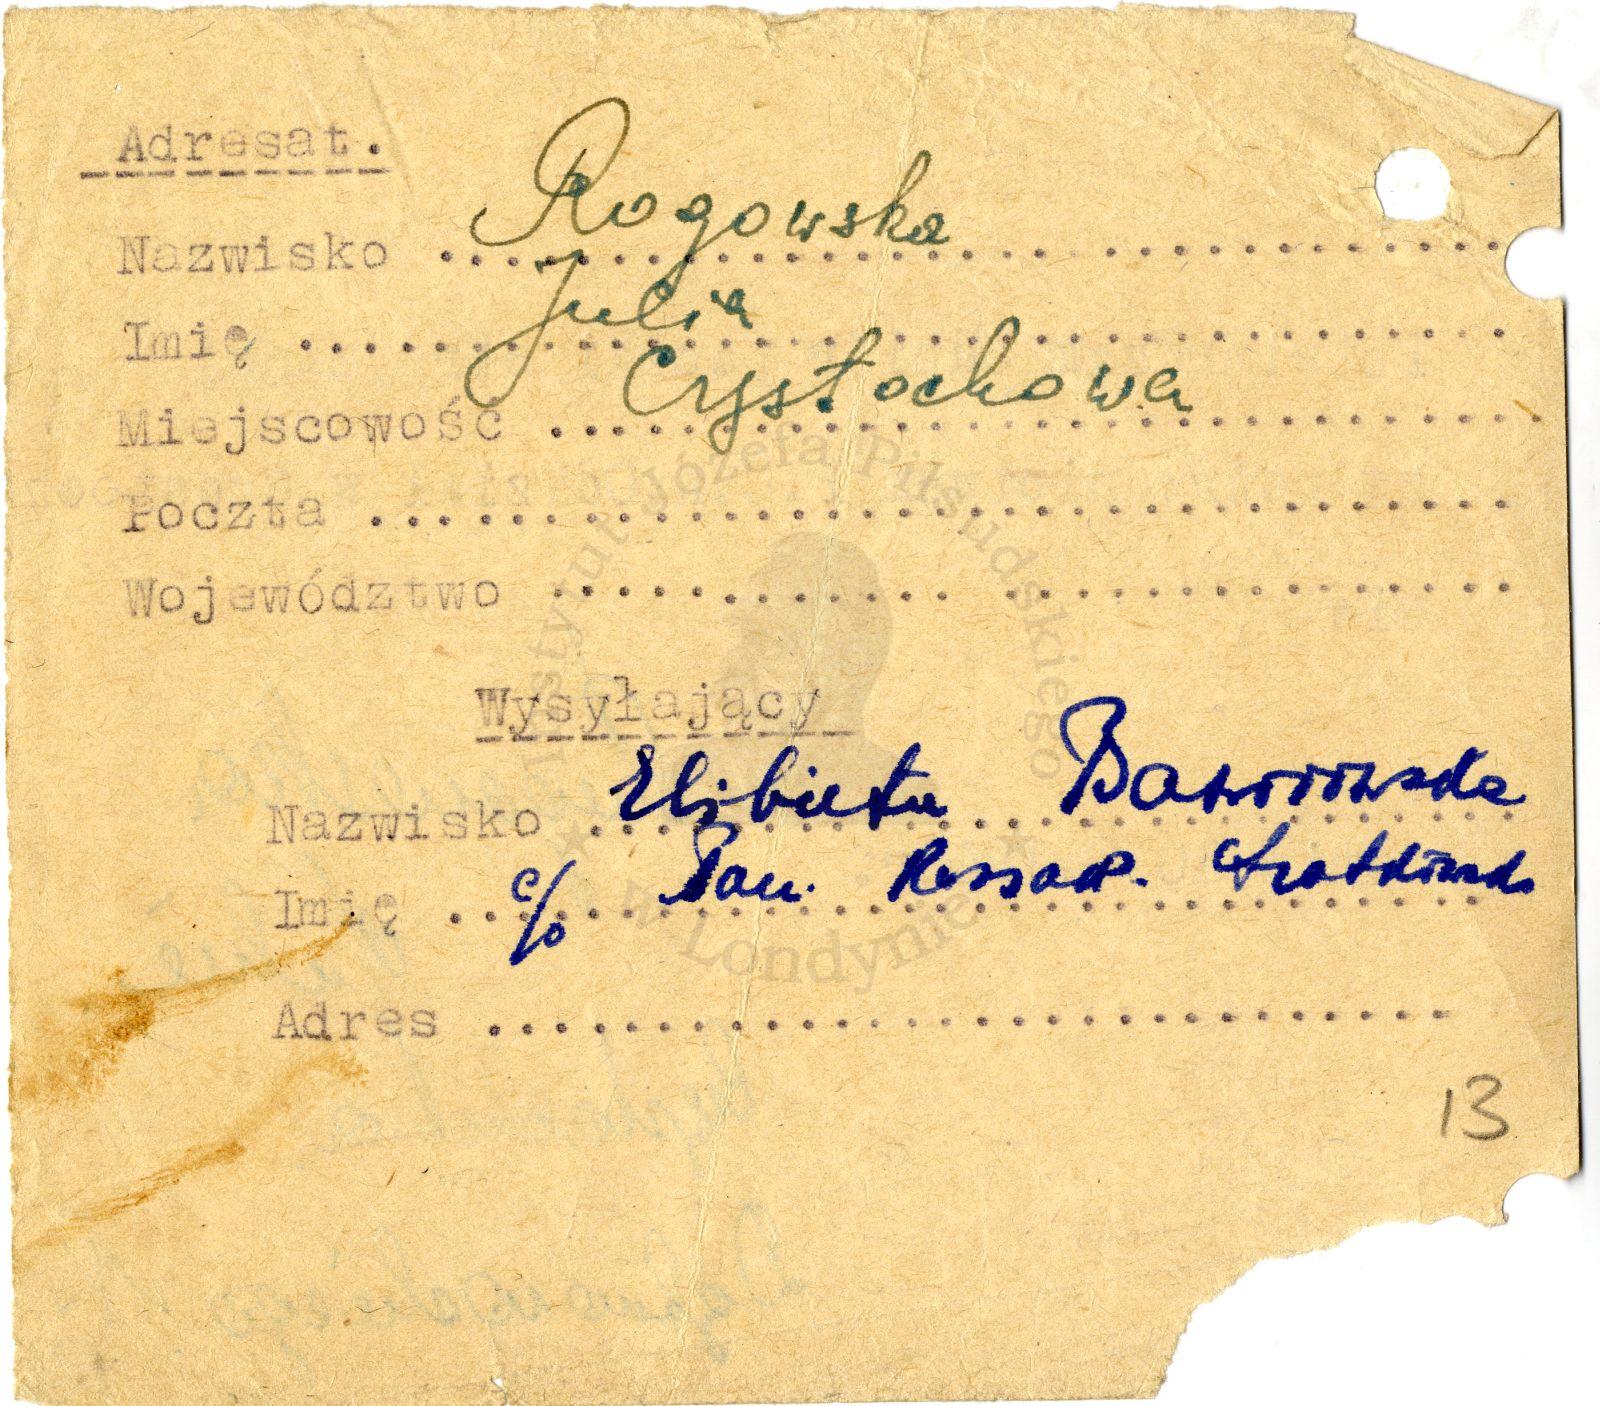 Adresat.
Nazwisko ........ Rogowska ........
Imię ........ Julia ........
Miejscowość ........ Częstochowa ........
Poczta ................
Województwo ................
Wysyłający
Nazwisko ........ Elżbieta Baworowska
Imię ........ c/o Pan.
Adres ................
13
Instytut Józefa Piłsudskiego
w Londynie